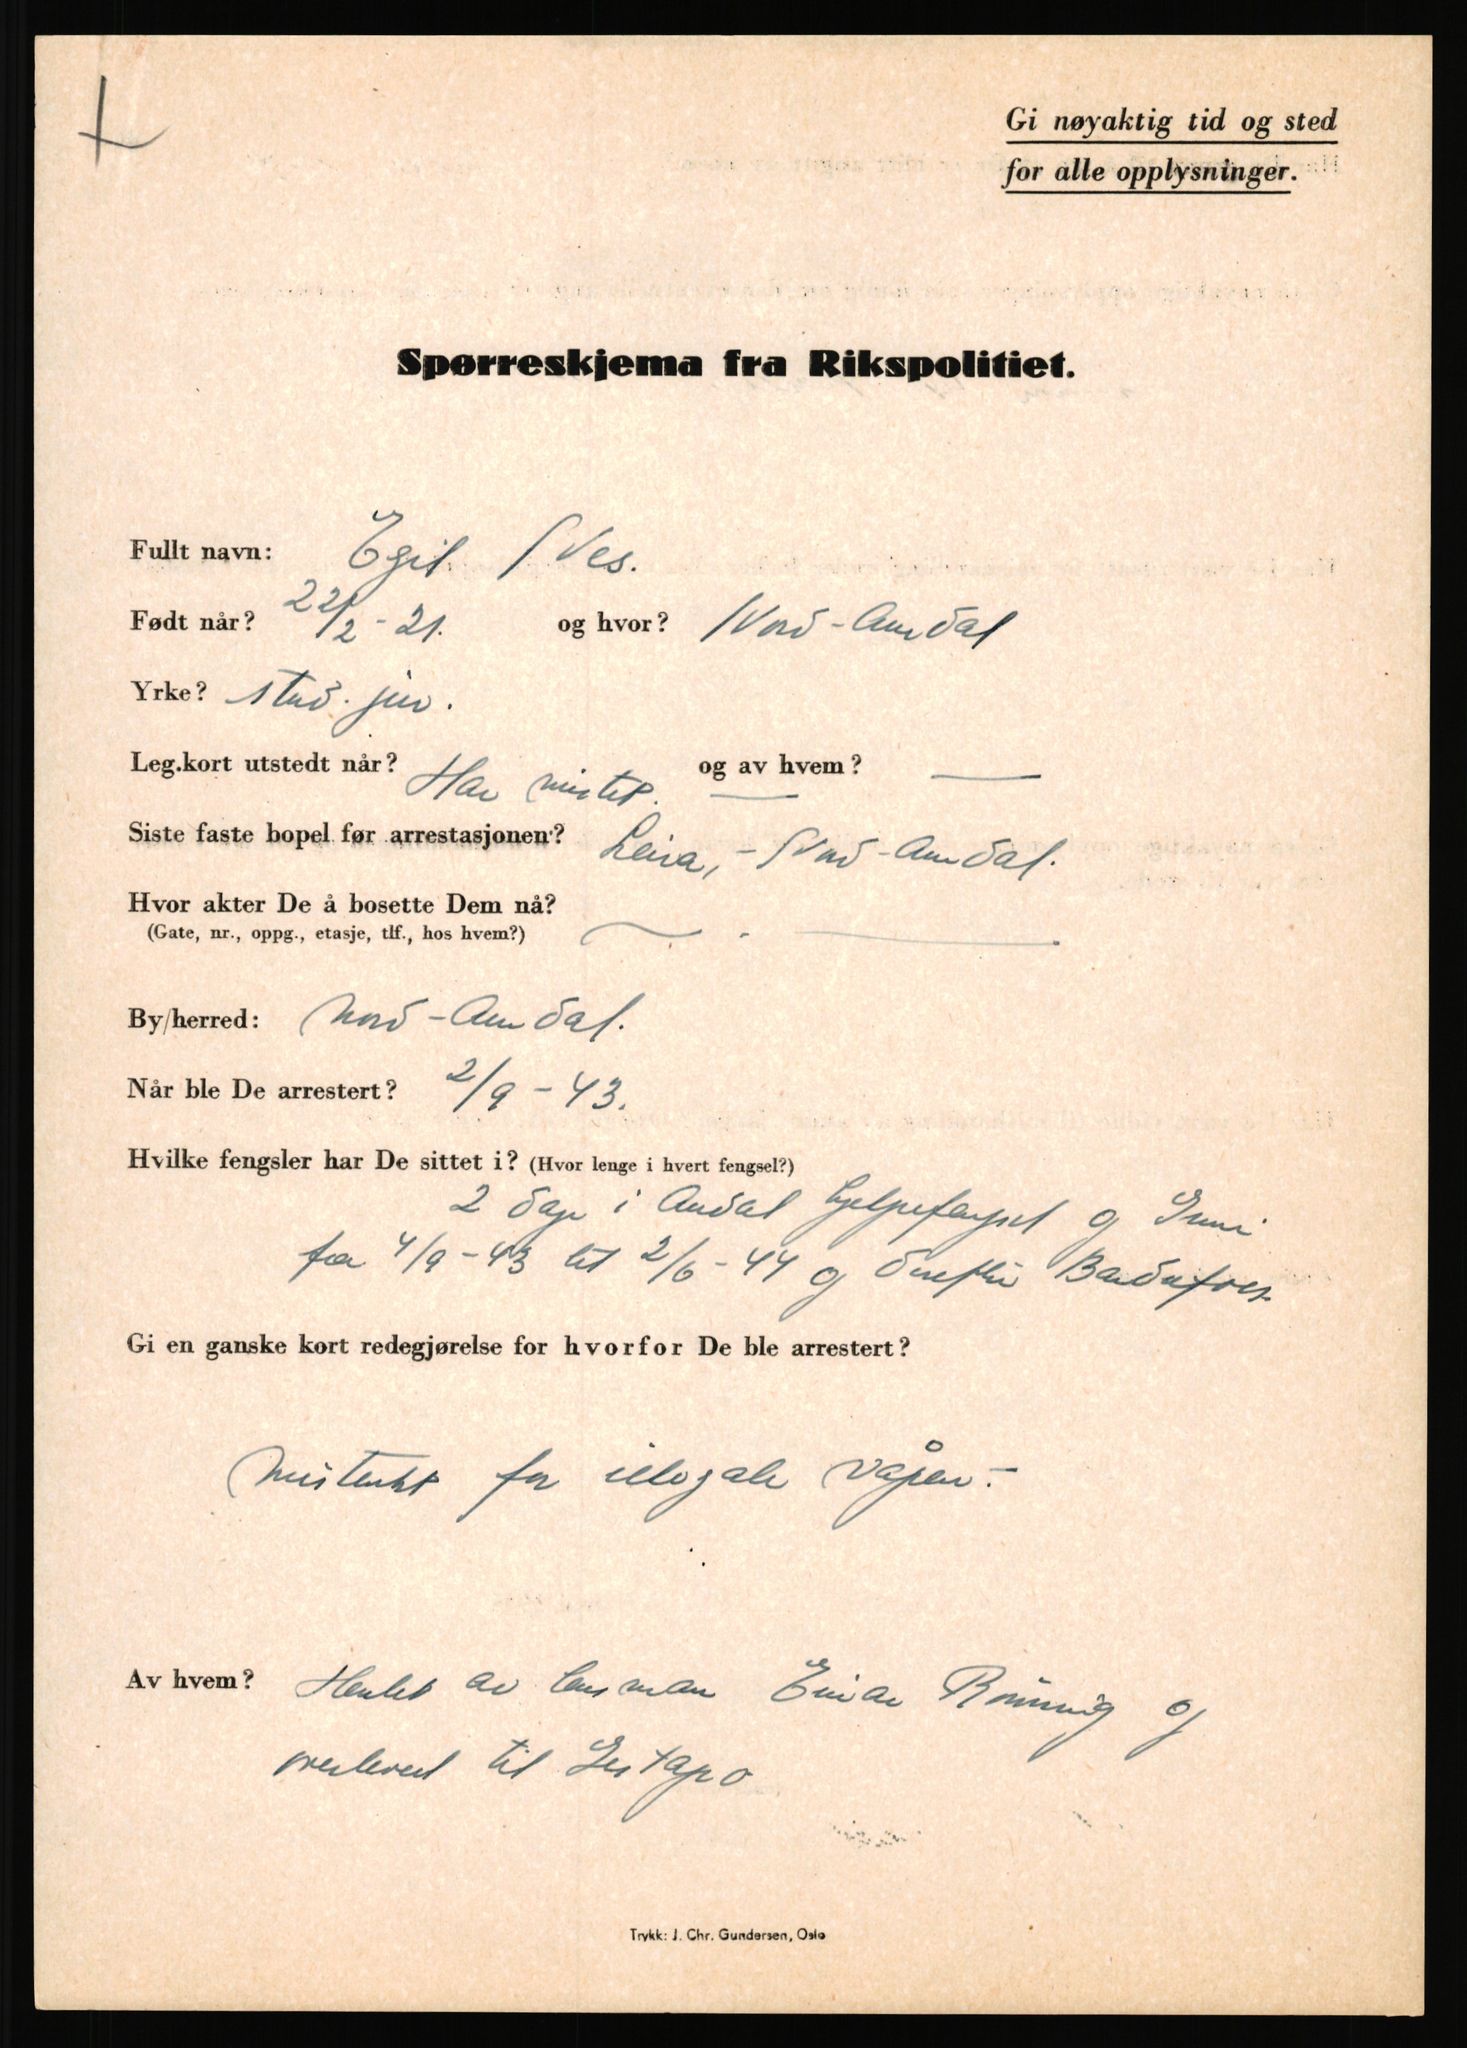 Gi nøyaktig tid og sted
for alle opplysninger.
Spørreskjema fra Rikspolitiet.
Fullt navn: Egil Nes.
Født når? 22/2-21. og hvor? Nord-Aurdal
Yrke? stud. jur.
Leg.kort utstedt når? Har mistet. og av hvem? —
Siste faste bopel før arrestasjonen? Leira, - Nord-Aurdal.
Hvor akter De å bosette Dem nå?
(Gate, nr., oppg., etasje, tlf., hos hvem?) — " —
By/herred: Nord-Aurdal.
Når ble De arrestert? 2/9-43.
Hvilke fengsler har De sittet i? (Hvor lenge i hvert fengsel?)
2 dage i Aurdal hjelpefengsel og Grini
fra 4/9-43 til 2/6-44 og derefter Bardufoss
Gi en ganske kort redegjørelse for hvorfor De ble arrestert?
Mistenkt for illegale våpen.-
Av hvem? Hentet av lensman Einar Rønning og
overlevert til Gestapo
Trykk: J. Chr. Gundersen, Oslo